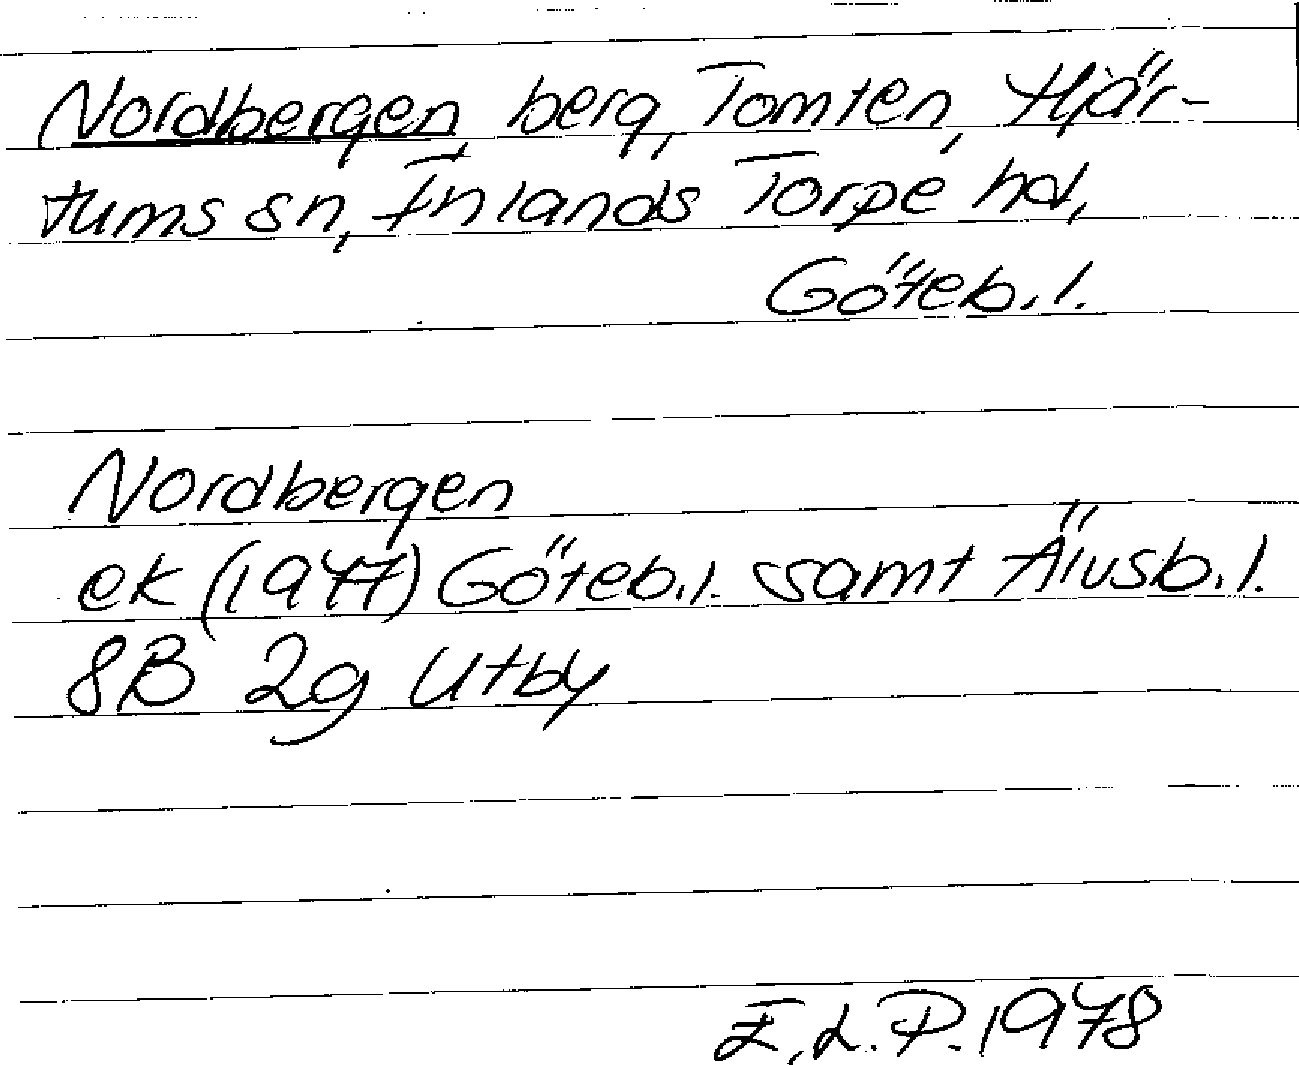 Nordbergen, berg, Tomten, Hjär-
tums sn, Inlands Torpe hd,
Göteb.l.
Nordbergen
ek (1977) Göteb.l. samt Älvsb.l.
8B 2g Utby
I.L.P. 1978